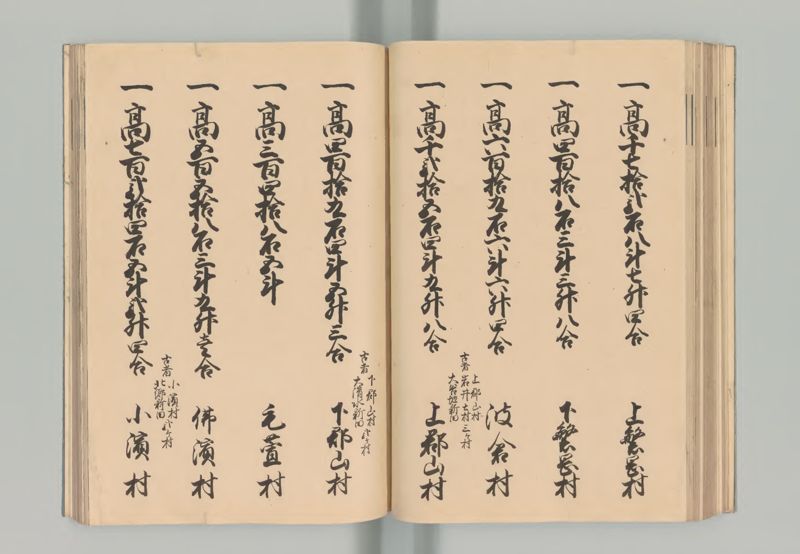 一 高千七拾弐石八斗七升四合 上繁岡村
一 高四百拾八石三斗三升八合 下繁岡村
一 高六百拾九石六斗六升四合 波倉村
古者 上郡山村 岩井土村 三ヶ村
大谷地新田
一 高千弐拾五石四斗九升八合 上郡山村
古者 下郡山村
大清水新田
一 高四百拾九石四斗五升三合 下郡山村
一 高三百四拾八石五斗 毛萱村
一 高五百五拾八石三斗九升壱合 佛濱村
古者 小濱村
北郷新田
一 高七百弐拾四石五斗弐升四合 小濱村